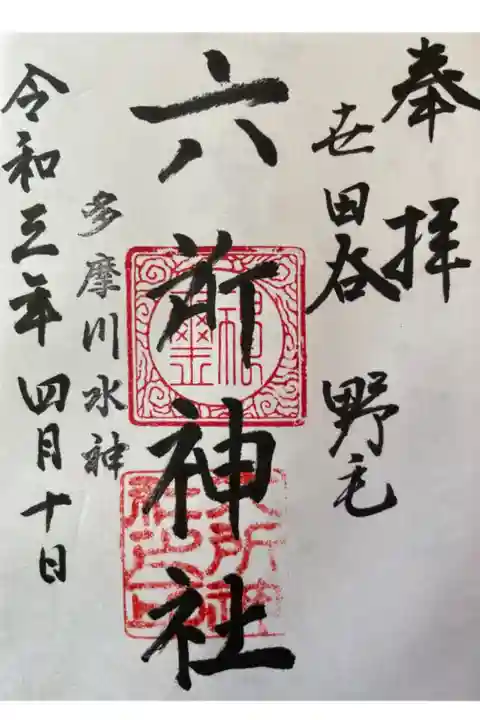 奉拝
世田谷 野毛
六所神社
多摩川水神
令和三年四月十日